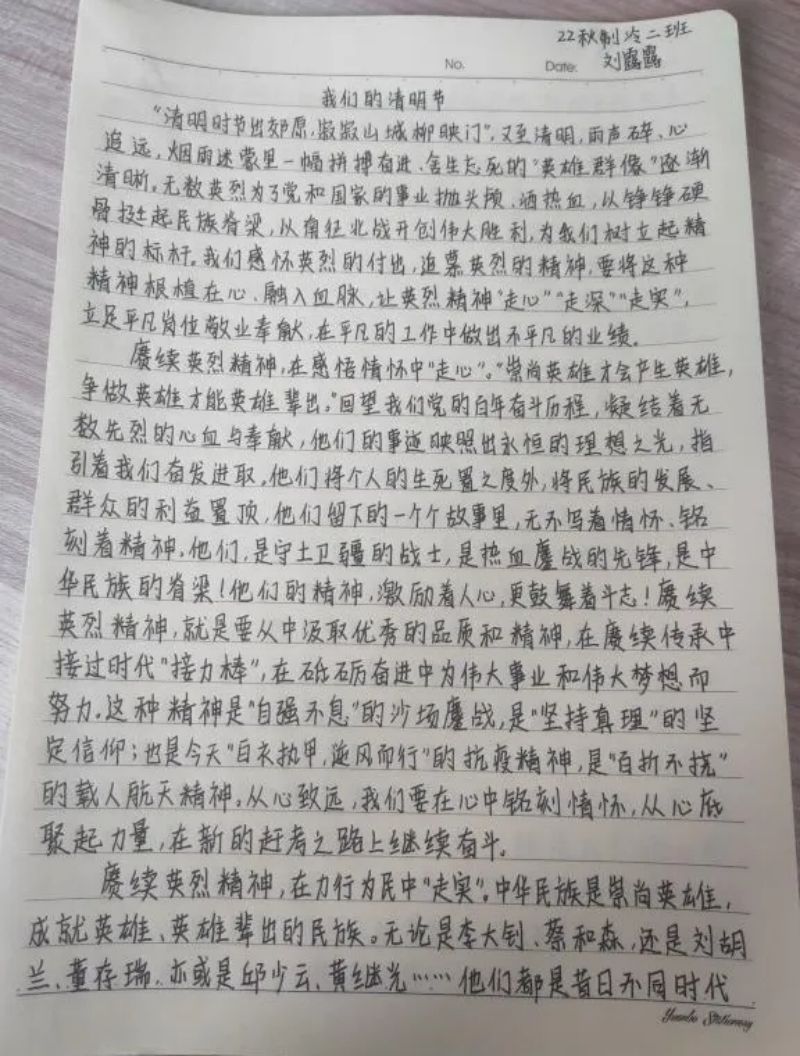 22秋制冷二班
No.
Date:
刘露露
我们的清明节
"清明时节出郊原,寂寂山城柳映门",又至清明,雨声碎、心
追远,烟雨迷蒙里一幅拼搏奋进、舍生忘死的"英雄群像"逐渐
清晰。无数英烈为了党和国家的事业抛头颅、洒热血,从铮铮硬
骨挺起民族脊梁,从南征北战开创伟大胜利,为我们树立起精
神的标杆。我们感怀英烈的付出,追慕英烈的精神,要将这种
精神根植在心、融入血脉,让英烈精神"走心""走深""走实",
立足平凡岗位敬业奉献,在平凡的工作中做出不平凡的业绩。
赓续英烈精神,在感悟情怀中"走心"。"崇尚英雄才会产生英雄,
争做英雄才能英雄辈出。"回望我们党的百年奋斗历程,凝结着无
数先烈的心血与奉献,他们的事迹映照出永恒的理想之光,指
引着我们奋发进取。他们将个人的生死置之度外,将民族的发展、
群众的利益置顶,他们留下的一个个故事里,无不写着情怀、铭
刻着精神。他们,是守土卫疆的战士,是热血鏖战的先锋,是中
华民族的脊梁!他们的精神,激励着人心,更鼓舞着斗志!赓续
英烈精神,就是要从中汲取优秀的品质和精神,在赓续传承中
接过时代"接力棒",在砥砺奋进中为伟大事业和伟大梦想而
努力。这种精神是"自强不息"的沙场鏖战,是"坚持真理"的坚
定信仰;也是今天"白衣执甲,逆风而行"的抗疫精神,是"百折不挠"
的载人航天精神。从心致远,我们要在心中铭刻情怀,从心底
聚起力量,在新的赶考之路上继续奋斗。
赓续英烈精神,在力行为民中"走实"。中华民族是崇尚英雄,
成就英雄、英雄辈出的民族。无论是李大钊、蔡和森,还是刘胡
兰、董存瑞,亦或是邱少云、黄继光……他们都是昔日不同时代